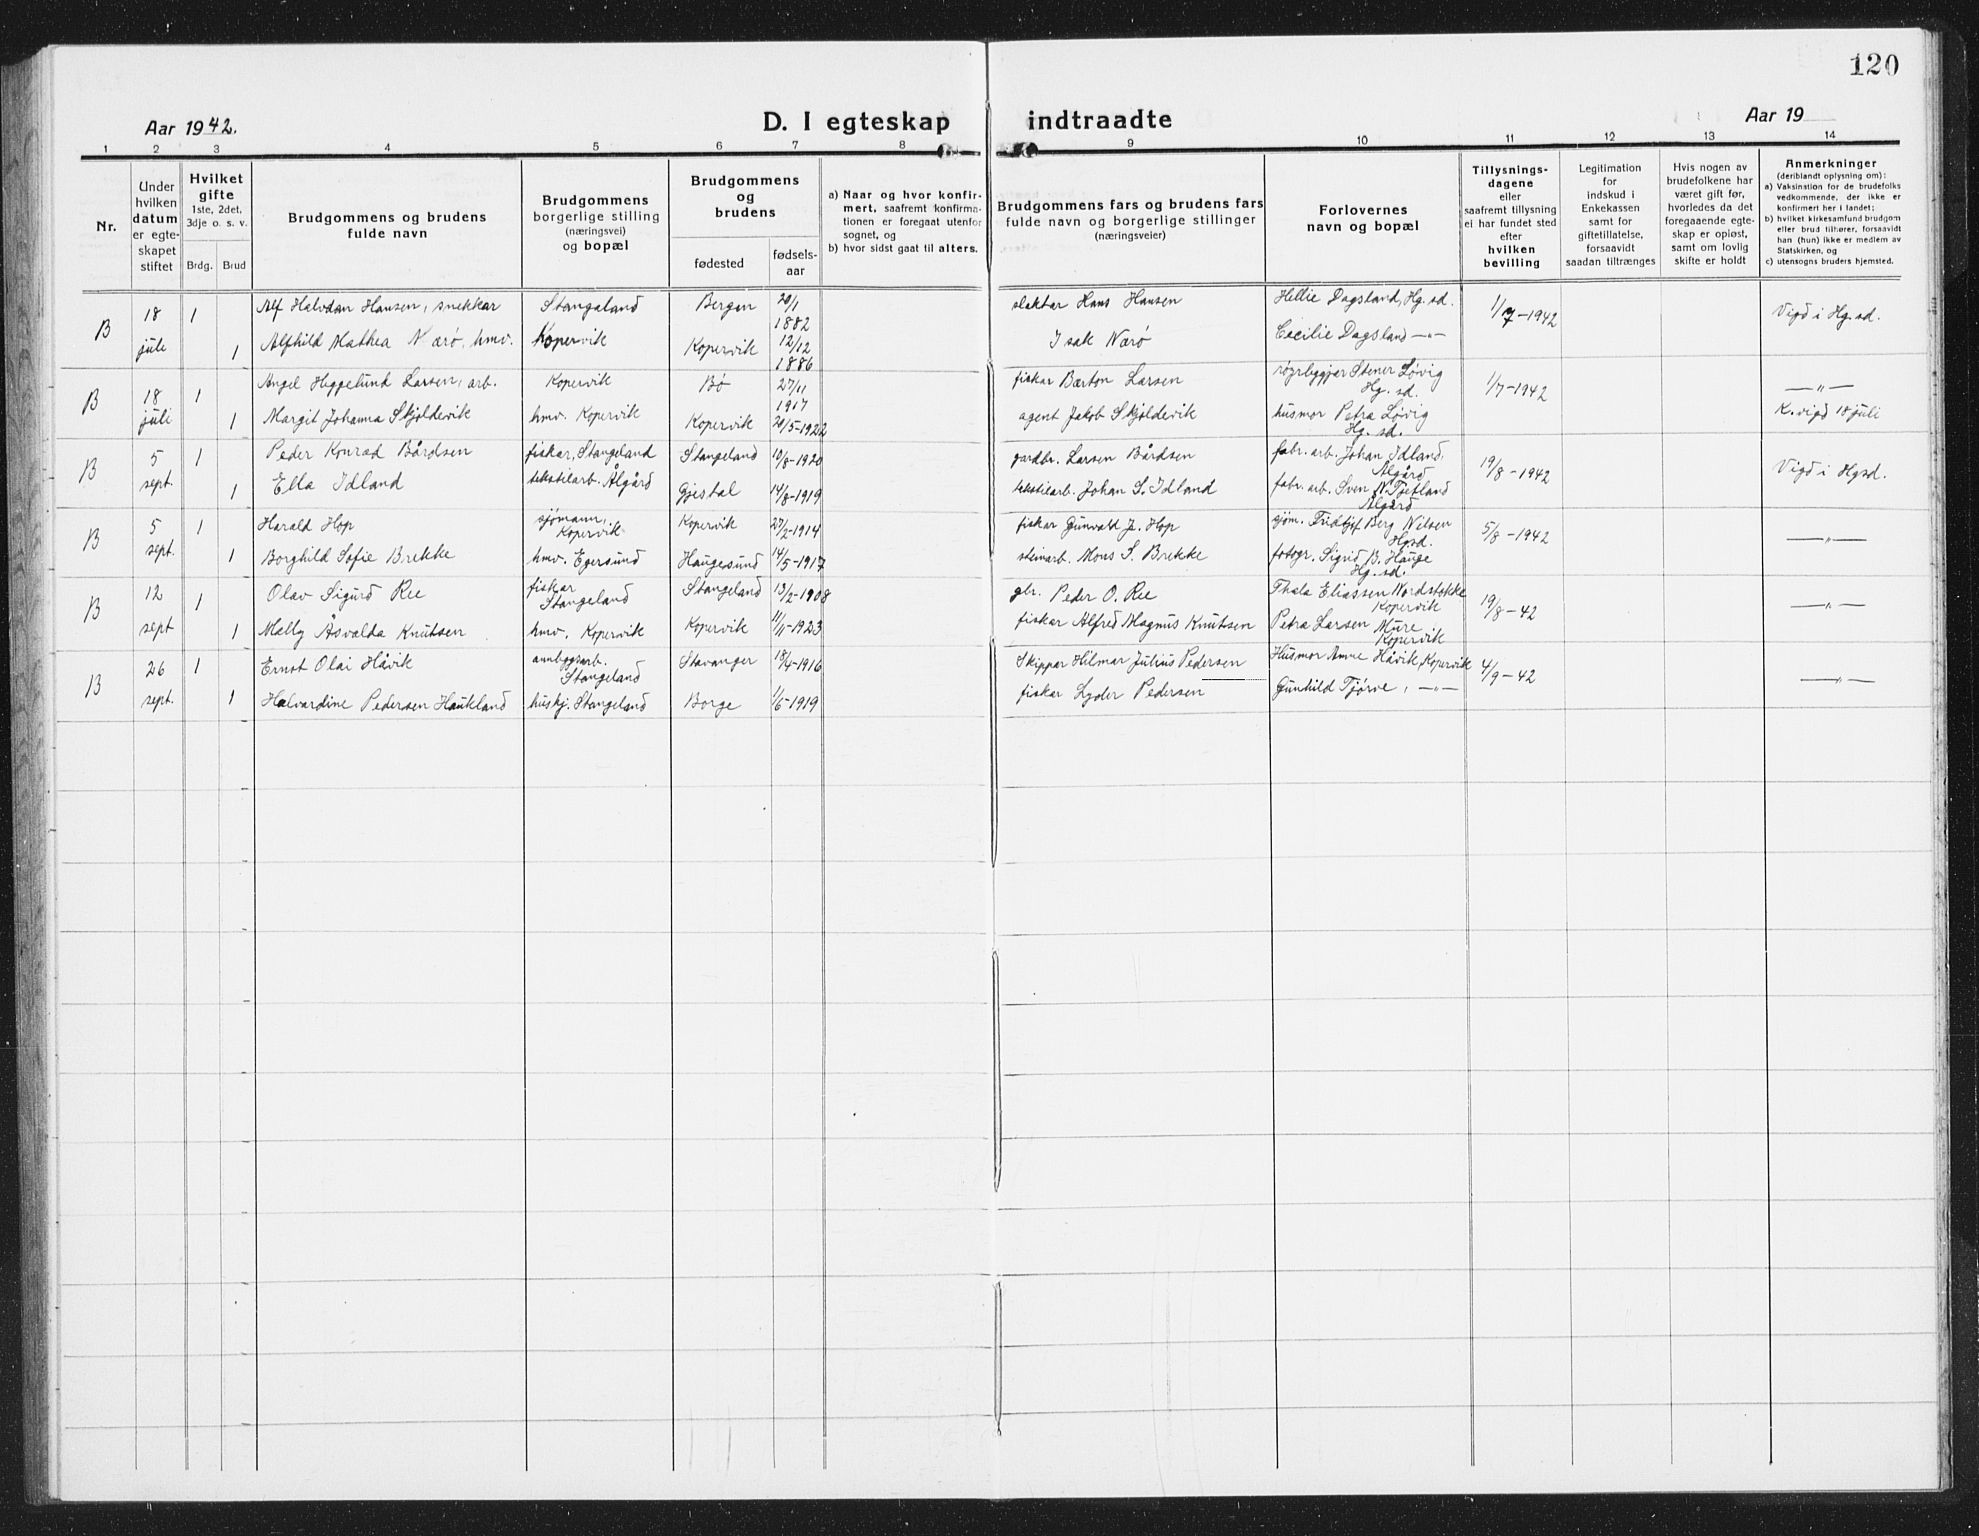 120
Aar 1942.
D. I egteskap indtraadte
Aar 19
1 2 3 4 5 6 7 8 9 10 11 12 13 14
Nr.
Under hvilken datum er egteskapet stiftet
Hvilket gifte
1ste, 2det, 3dje o. s. v.
Brdg. Brud
Brudgommens og brudens fulde navn
Brudgommens borgerlige stilling (næringsvei) og bopæl
Brudgommens og brudens
fødested
fødselsaar
a) Naar og hvor konfirmert, saafremt konfirmationen er foregaat utenfor sognet, og
b) hvor sidst gaat til alters.
Brudgommens fars og brudens fars fulde navn og borgerlige stillinger (næringsveier)
Forlovernes navn og bopæl
Tillysningsdagene eller saafremt tillysning ei har fundet sted efter hvilken bevilling
Legitimation for indskud i Enkekassen samt for giftetillatelse, forsaavidt saadan tiltrænges
Hvis nogen av brudefolkene har været gift før, hvorledes da det foregaaende egteskap er opløst, samt om lovlig skifte er holdt
Anmerkninger
(deriblandt oplysning om):
a) Vaksinstion for de brudefolks vedkommende, der ikke er konfirmert her i landet;
b) hvilket kirkesamfund brudgom eller brud tilhører, forsaavidt han (hun) ikke er medlem av Statskirken, og
c) utensogns bruders hjemsted.
B 18 juli 1 Alf Halvdan Hansen, snekkar Stangaland Bergen 20/1 1882 slaktar Hans Hansen Hellie Dagsland, Hg. sd. 1/7-1942 Vigd i Hg. sd.
1 Alfhild Mathea Nærø, hmv. Kopervik Kopervik 12/12 1886 Isak Nærø Cecilie Dagsland —"—
B 18 juli 1 Angel Heggelund Larsen, arb. Kopervik Bø 27/11 1917 fiskar Barton Larsen røyrleggjar Stener Løvig Hg. sd. 1/7-1942 —"—
1 Margit Johanna Skjoldevik hmv. Kopervik Kopervik 20/5-1922 agent Jakob Skjoldevik husmor Petra Løvig Hg. sd. K. vigd 18 juli
B 5 sept. 1 Peder Konrad Bårdsen fiskar, Stangeland Stangeland 10/8-1920 gardbr. Larsen Bårdsen fabr. arb. Johan Idland, Ålgård 19/8-1942 Vigd i Hgsd.
1 Ella Idland tekstilarb. Ålgård Gjestal 14/8-1919 tekstilarb. Johan S. Idland fabr. arb. Sven N. Tjetland Ålgård
B 5 sept. 1 Harald Hop sjømann, Kopervik Kopervik 27/2-1914 fiskar Gunvald J. Hop sjøm. Fridtjof Berg Nilsen Hgsd. 5/8-1942 —"—
1 Borghild Sofie Brekke hmv. Egersund Haugesund 14/5-1917 steinarb. Mons S. Brekke fotogr. Sigrid B. Hauge Hg. sd.
B 12 sept 1 Olav Sigurd Ree fiskar Stangeland Stangeland 13/2-1908 gbr. Peder O. Ree Thala Eliassen Nordstokke Kopervik 19/8-42 —"—
1 Mally Åsvalda Knutsen hmv. Kopervik Kopervik 11/11-1923 fiskar Alfred Magnus Knutsen Petra Larsen Mure Kopervik
B 26 sept. 1 Ernst Olai Håvik anleggsarb. Stangeland Stavanger 18/4-1916 Skippar Hilmar Julius Pedersen Husmor Anne Håvik, Kopervik 4/9-42 —"—
1 Halvardine Pedersen Haukland huskj. Stangeland Borge 1/6-1919 fiskar Lyder Pedersen Gunhild Tjørve, —"—